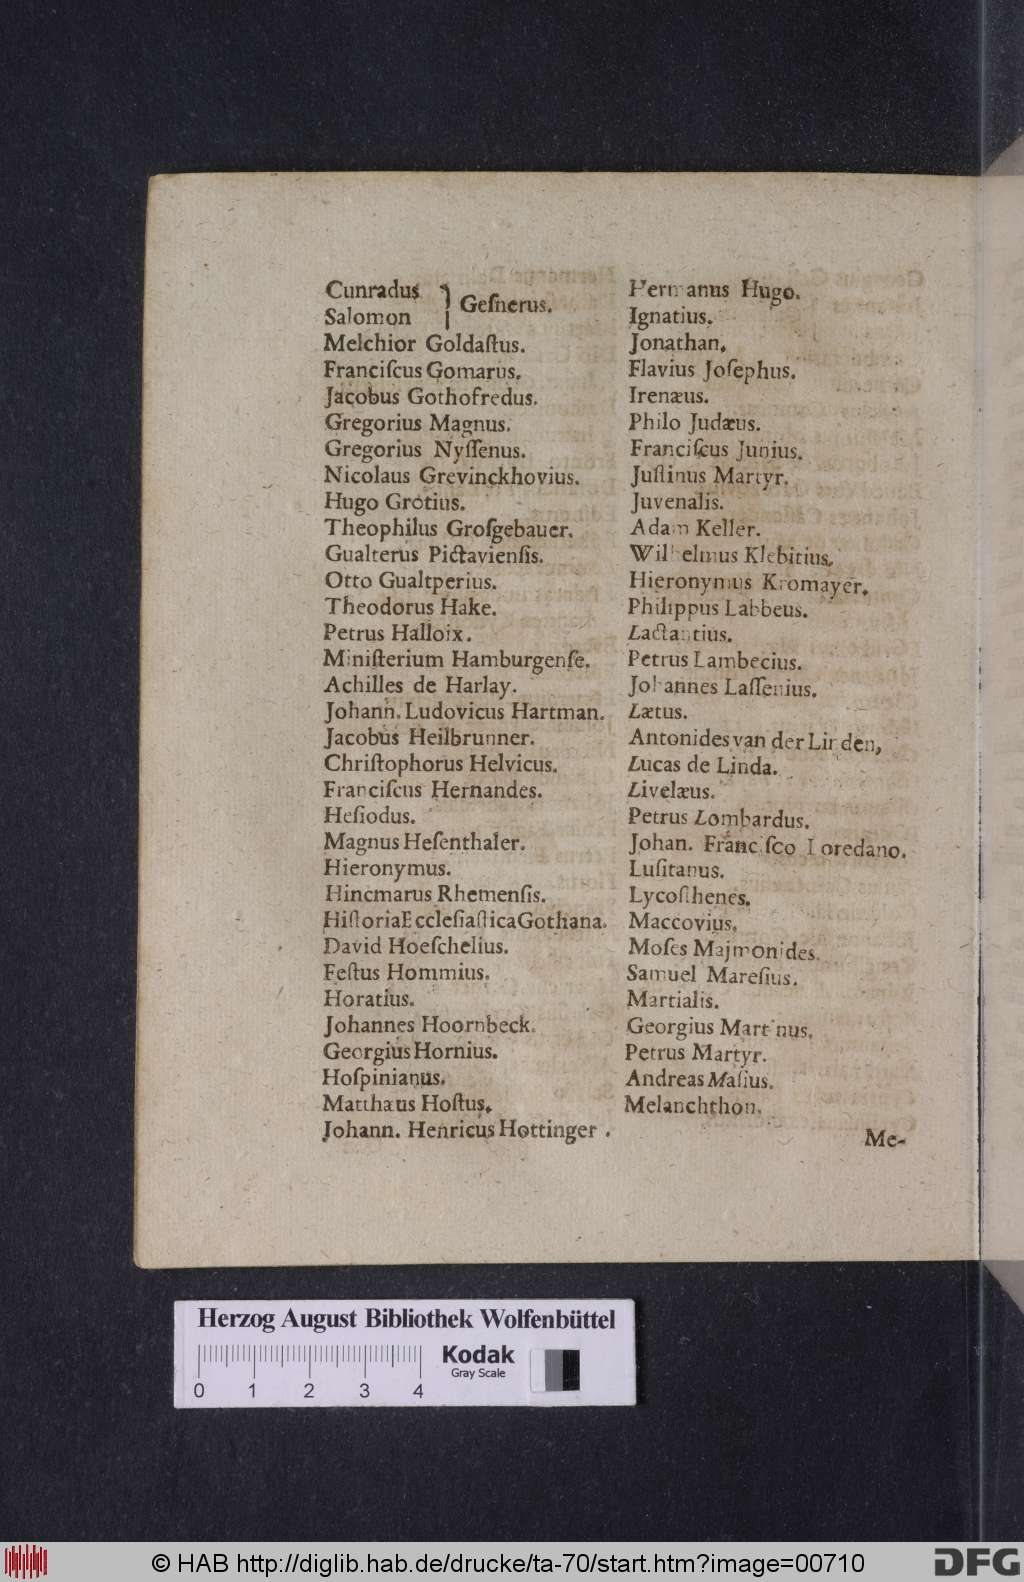 Cunradus } Geſnerus.
Salomon
Melchior Goldaſtus.
Franciſcus Gomarus.
Jacobus Gothofredus.
Gregorius Magnus.
Gregorius Nyſſenus.
Nicolaus Grevinckhovius.
Hugo Grotius.
Theophilus Groſgebauer.
Gualterus Pictavienſis.
Otto Gualtperius.
Theodorus Hake.
Petrus Halloix.
Miniſterium Hamburgenſe.
Achilles de Harlay.
Johann. Ludovicus Hartman.
Jacobus Heilbrunner.
Chriſtophorus Helvicus.
Franciſcus Hernandes.
Heſiodus.
Magnus Heſenthaler.
Hieronymus.
Hincmarus Rhemenſis.
Hiſtoria Eccleſiaſtica Gothana.
David Hoeſchelius.
Feſtus Hommius.
Horatius.
Johannes Hoornbeck.
Georgius Hornius.
Hoſpinianus.
Matthæus Hoſtus.
Johann. Henricus Hottinger.
Hermanus Hugo.
Ignatius.
Jonathan.
Flavius Joſephus.
Irenæus.
Philo Judæus.
Franciſcus Junius.
Juſtinus Martyr.
Juvenalis.
Adam Keller.
Wilhelmus Klebitius.
Hieronymus Kromayer.
Philippus Labbeus.
Lactantius.
Petrus Lambecius.
Johannes Laſſenius.
Lætus.
Antonides van der Linden,
Lucas de Linda.
Livelæus.
Petrus Lombardus.
Johan. Franciſco Loredano.
Luſitanus.
Lycoſthenes.
Maccovius.
Moſes Majmonides.
Samuel Mareſius.
Martialis.
Georgius Martinus.
Petrus Martyr.
Andreas Maſius.
Melanchthon.
Me-
Herzog August Bibliothek Wolfenbüttel
Kodak
Gray Scale
0 1 2 3 4
© HAB http://diglib.hab.de/drucke/ta-70/start.htm?image=00710
DFG